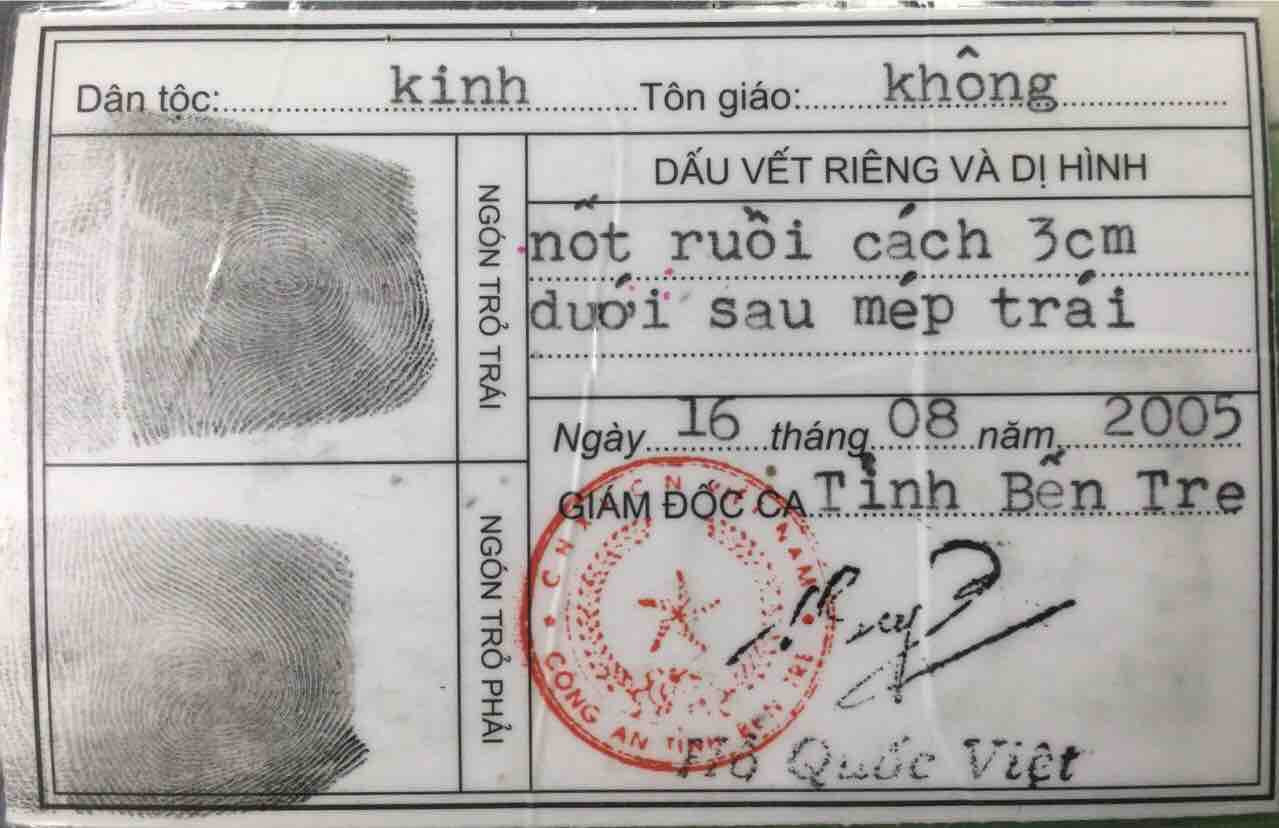 Dân tộc: kinh Tôn giáo: không
NGÓN TRỎ TRÁI
DẤU VẾT RIÊNG VÀ DỊ HÌNH
nốt ruồi cách 3cm
dưới sau mép trái
Ngày 16 tháng 08 năm 2005
GIÁM ĐỐC CA Tỉnh Bến Tre
NGÓN TRỎ PHẢI
CÔNG AN TỈNH BẾN TRE
Hồ Quốc Việt